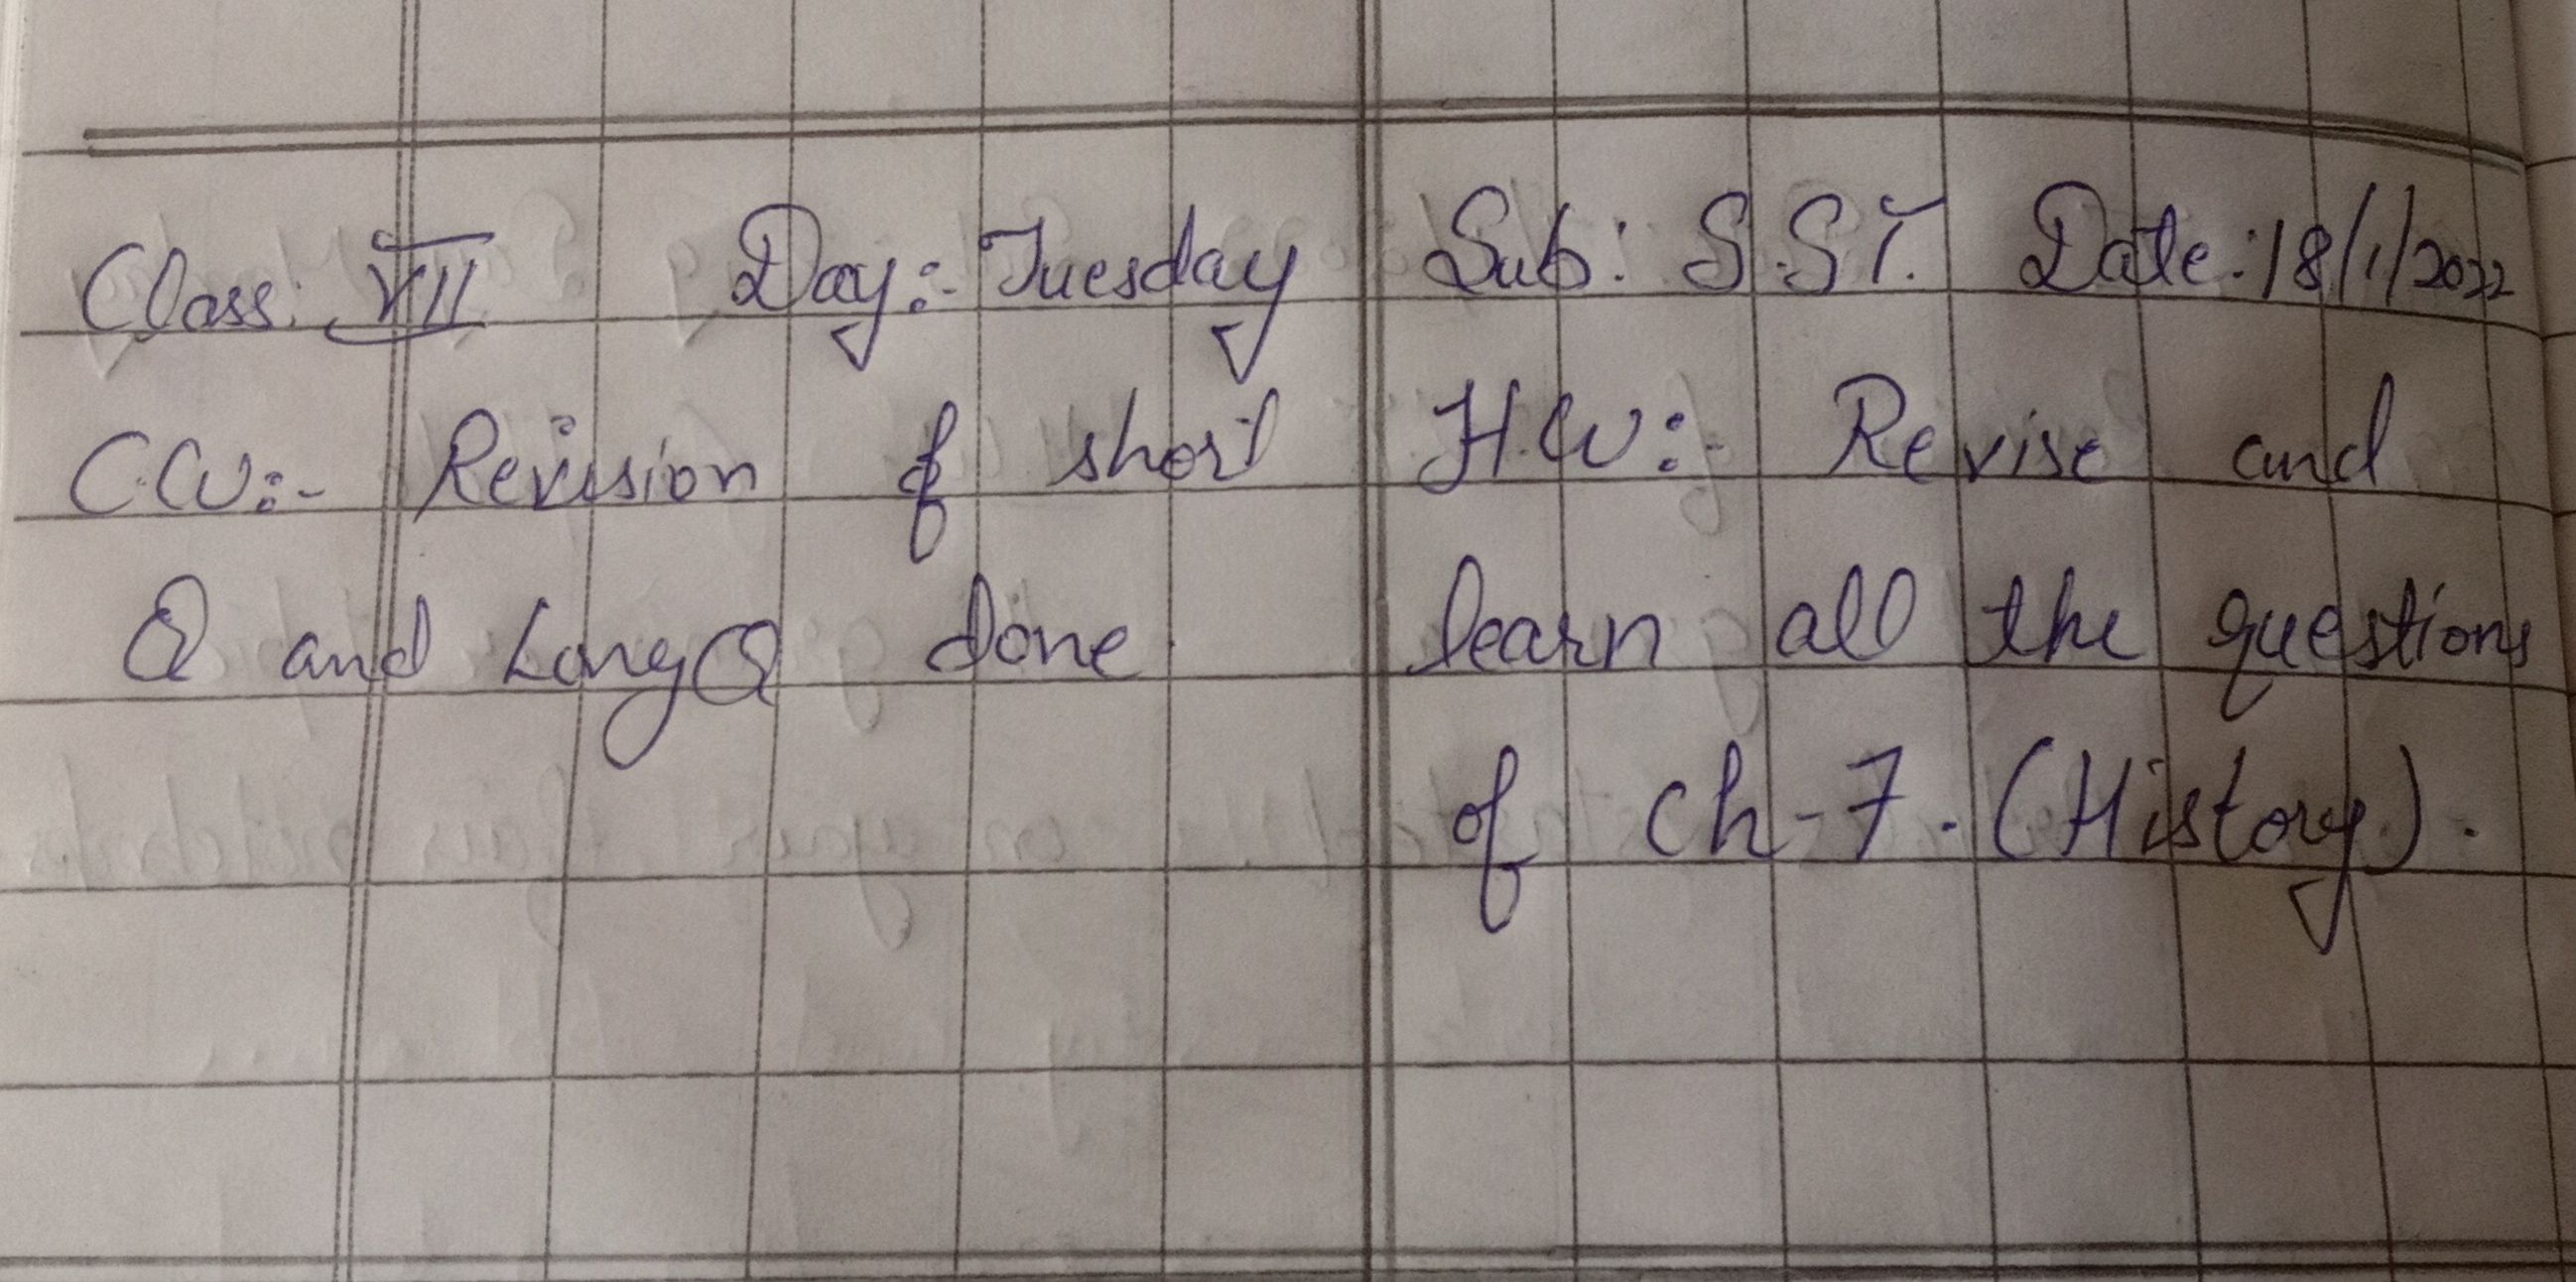 Class: VII Day:- Tuesday Sub: S.ST. Date:18/1/2022
C.W:- Revision of short
Q and Long Q done.
H.W:- Revise and
learn all the questions
of Ch-7. (History).